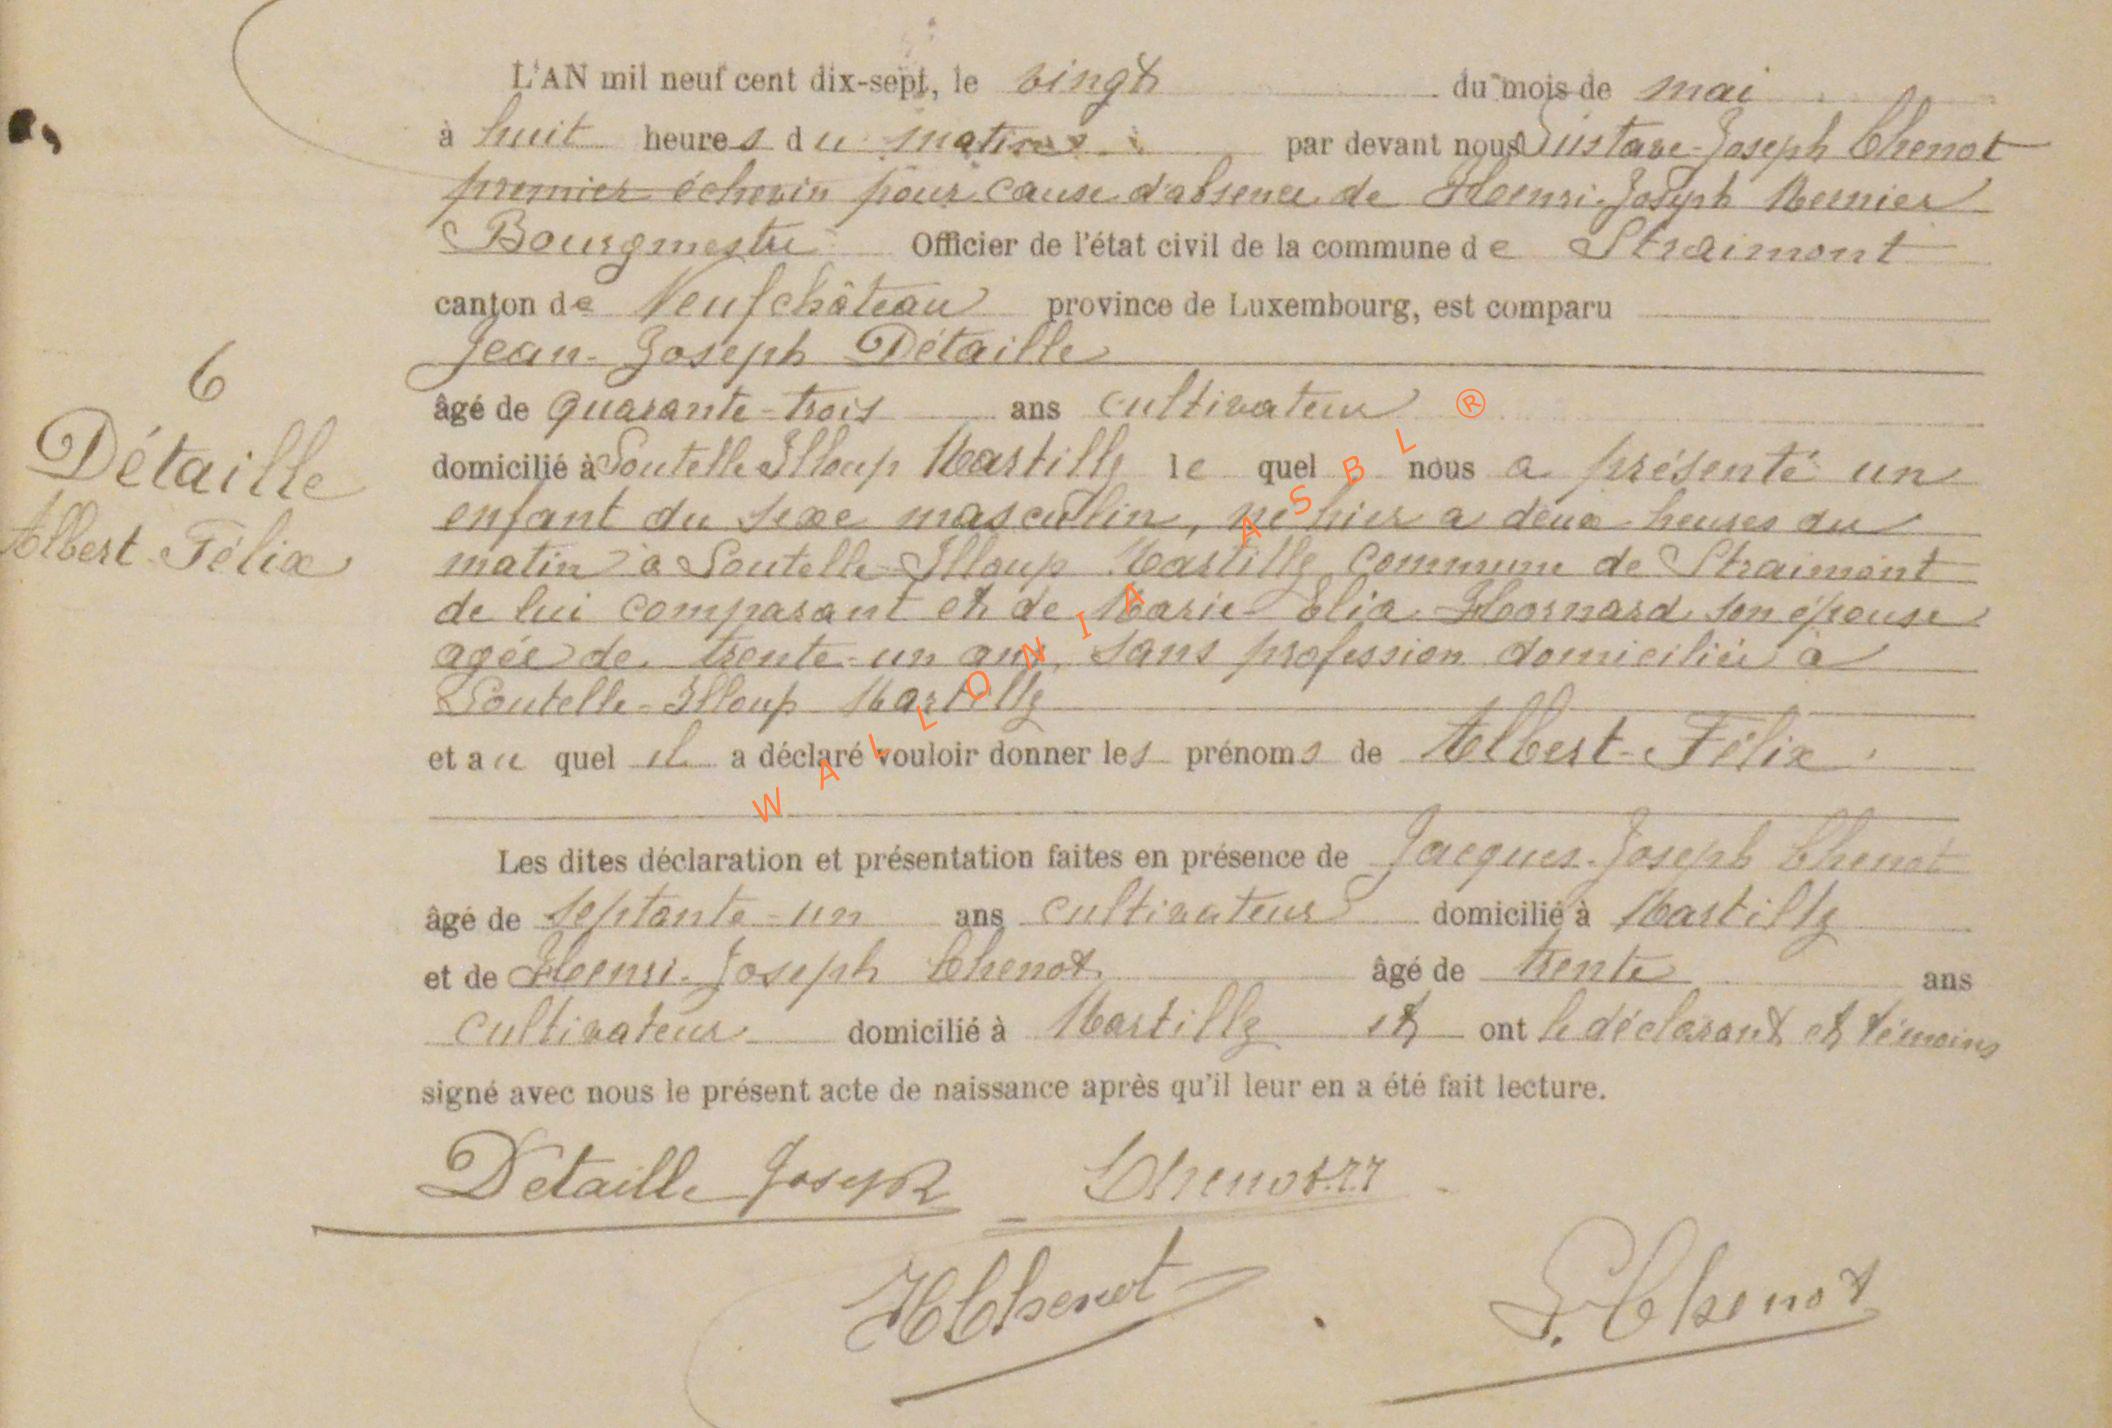 L'AN mil neuf cent dix-sept, le vingt du mois de mai
à huit heures du matin par devant nous Gustave-Joseph Chenot
premier échevin pour cause d'absence de Henri-Joseph Meunier
Bourgmestre Officier de l'état civil de la commune de Straimont
canton de Neufchâteau province de Luxembourg, est comparu
Jean-Joseph Détaille
âgé de quarante-trois ans cultivateur
domicilié à Martilly lequel nous a présenté un
enfant du sexe masculin, né hier à deux heures du
matin à Martilly commune de Straimont
de lui comparant et de Marie-Elia Hornard son épouse
agée de trente-un ans, sans profession domiciliée à
Martilly
et au quel il a déclaré vouloir donner les prénoms de Albert-Félix
Les dites déclaration et présentation faites en présence de Jacques-Joseph Chenot
âgé de septante-un ans cultivateur domicilié à Martilly
et de Henri-Joseph Chenot âgé de trente ans
cultivateur domicilié à Martilly et ont le déclarant et témoins
signé avec nous le présent acte de naissance après qu'il leur en a été fait lecture.
Détaille Joseph Chenot
H Chenot G. Chenot
6
Détaille
Albert-Félix
WALLONIA ASBL ®